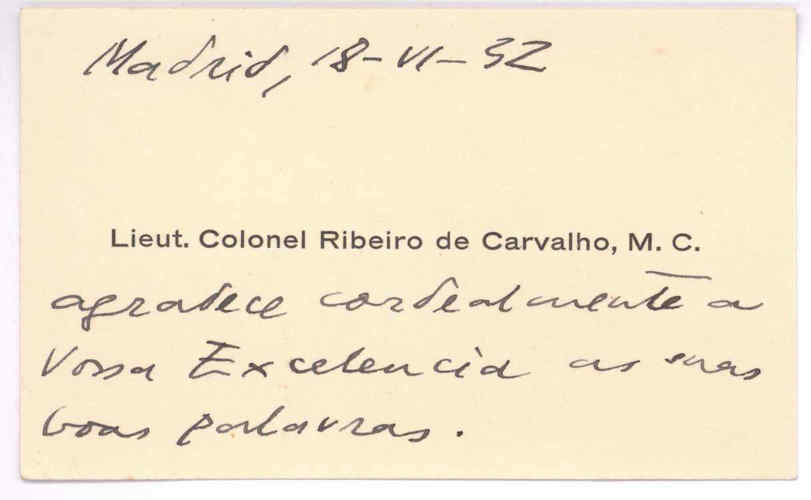 Madrid, 18-VI-32
Lieut. Colonel Ribeiro de Carvalho, M. C.
agradece cordealmente a
Vossa Excelencia as suas
boas palavras.